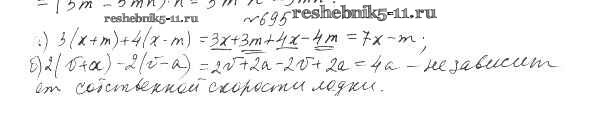 = (5m - 5mn)·n = 5m
reshebnik5-11.ru
№695 reshebnik5-11.ru
а) 3(x+m)+4(x-m)=3x+3m+4x-4m=7x-m;
б) 2(v+a)-2(v-a)=2v+2a-2v+2a=4a - не зависит
от собственной скорости лодки.